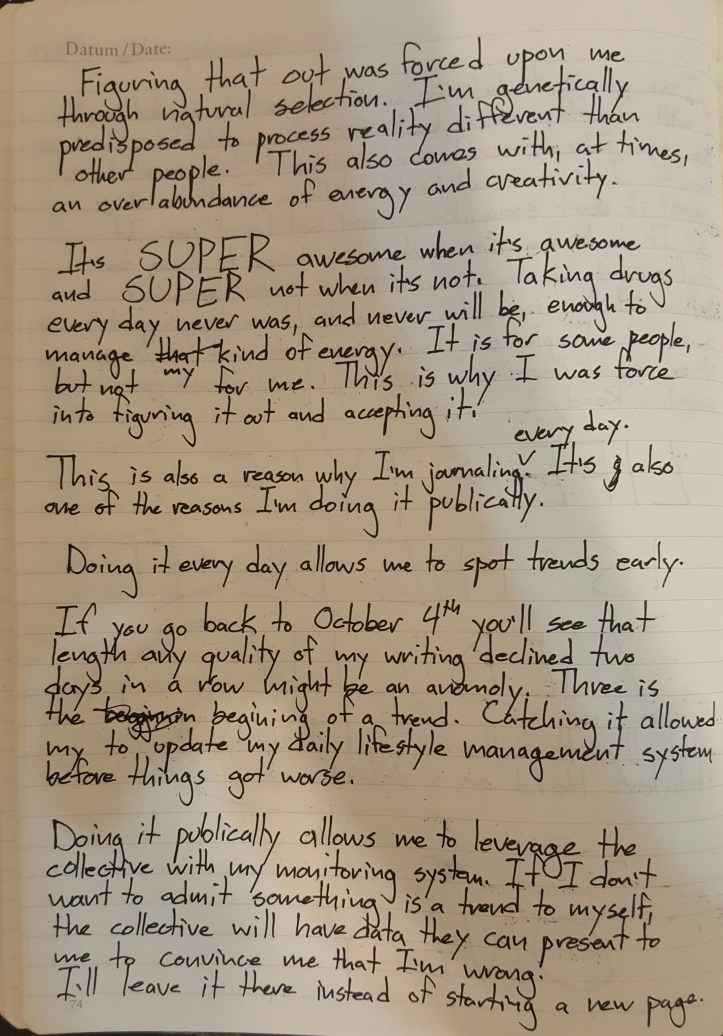 Datum / Date:
Figuring that out was forced upon me
through natural selection. I'm genetically
predisposed to process reality different than
other people. This also comes with, at times,
an over abundance of energy and creativity.
It's SUPER awesome when it's awesome
and SUPER not when it's not. Taking drugs
every day never was, and never will be, enough to
manage that kind of energy. It is for some people,
but not my for me. This is why I was force
into figuring it out and accepting it.
every day.
This is also a reason why I'm journaling. It's also
one of the reasons I'm doing it publically.
Doing it every day allows me to spot trends early.
If you go back to October 4th you'll see that
length any quality of my writing declined two
days in a row might be an anomoly. Three is
the begginin begining of a trend. Catching it allowed
my to update my daily lifestyle management system
before things got worse.
Doing it publically allows me to leverage the
collective with my monitoring system. If I don't
want to admit something is a trend to myself,
the collective will have data they can present to
me to convince me that I'm wrong.
I'll leave it there instead of starting a new page.
74